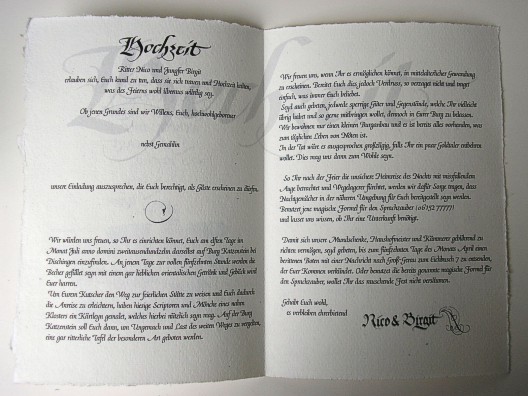 Hochzeit
Ritter Nico und Jungfer Birgit
erlauben sich, Euch kund zu tun, dass sie sich trauen und Hochzeit halten,
was des Feierns wohl überaus würdig sey.
Ob jenes Grundes sind wir Willens, Euch, hochwohlgeborener
nebst Gemahlin
unsere Einladung auszusprechen, die Euch berechtigt, als Gäste erscheinen zu dürfen.
Wir würden uns freuen, so Ihr es einrichten könnet, Euch am elften Tage im
Monat Juli anno domini zweitausendundzehn daselbst auf Burg Katzenstein bei
Dischingen einzufinden. An jenem Tage zur vollen fünfzehnten Stunde werden die
Becher gefüllet seyn mit einem gar lieblichen orientalischen Getränk und Gebäck wird
Euer harren.
Um Eurem Kutscher den Weg zur feierlichen Stätte zu weisen und Euch dadurch
die Anreise zu erleichtern, haben hiesige Scriptoren und Mönche eines nahen
Klosters ein Kärtleyn gemalet, welches hierbei nützlich seyn mag. Auf der Burg
Katzenstein soll Euch dann, um Ungemach und Last des weiten Weges zu vergelten,
eine gar ritterliche Tafel der besonderen Art geboten werden.
Wir freuen uns, wenn Ihr es ermöglichen könnet, in mittelalterlicher Gewandung
zu erscheinen. Bereitet Euch dies jedoch Verdruss, so verzaget nicht und traget
einfach, was immer Euch beliebet.
Seyd auch gebeten, jedwede sperrige Güter und Gegenstände, welche Ihr vielleicht
übrig habet und so gerne mitbringen wollet, dennoch in Eurer Burg zu belassen.
Wir bewohnen nur einen kleinen Burganbau und es ist bereits alles vorhanden, was
zum täglichen Leben von Nöten ist.
In der Tat wäre es ausgesprochen großzügig, falls Ihr ein paar Goldtaler erübrigen
wollet. Dies mag uns dann zum Wohle seyn.
So Ihr nach der Feier die unsichere Heimreise des Nachts mit missfallendem
Auge betrachtet und Wegelagerer fürchtet, werden wir dafür Sorge tragen, dass
Nachtgemächer in der näheren Umgebung für Euch bereitgestellt seyn werden.
Benutzet jene magische Formel für den Sprechzauber (06152 77777)
und lasset uns wissen, ob Ihr eine Unterkunft benötigt.
Damit sich unsere Mundschenke, Haushofmeister und Kämmerer gebührend zu
richten vermögen, seyd gebeten, bis zum fünfzehnten Tage des Monats April einen
berittenen Boten mit einer Nachricht nach Groß-Gerau zum Eichbusch 7 zu entsenden,
der Euer Kommen verkündet. Oder benutzet die bereits genannte magische Formel für
den Sprechzauber, wollet Ihr das rauschende Fest nicht versäumen.
Gehabt Euch wohl,
es verbleiben ehrerbietend
Nico & Birgit